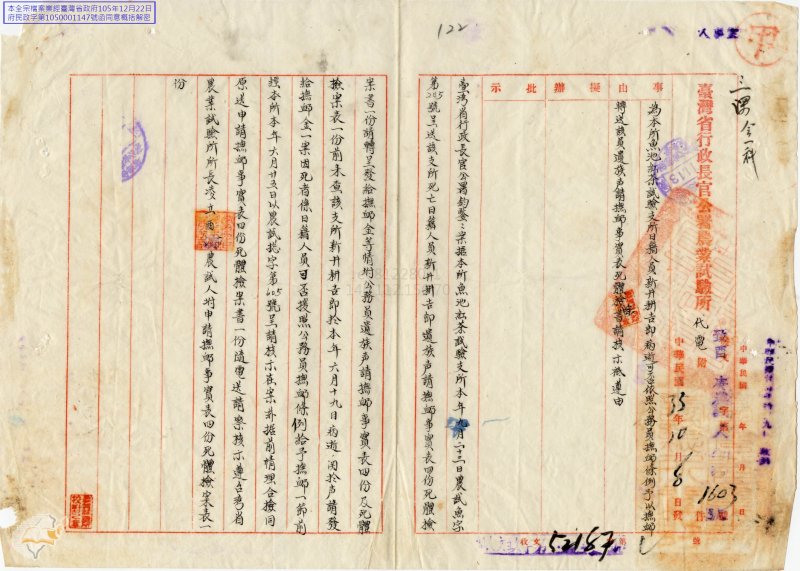 本全宗檔案業經臺灣省政府105年12月22日
府民政字第1050001147號函同意概括解密
122
人事室
臺灣省行政長官公署農業試驗所
代電
附
中華民國 年 月 日
中華民國35年10月8日發
1603
件
號
事由
擬辦
批示
為本所魚池紅茶試驗支所日籍人員新井耕吉郎病逝可否依照公務員撫卹條例予以撫卹
轉送該員遺族声請撫卹事實表死體檢案書請核示祇遵由
臺灣省行政長官公署鈞鑒：案據本所魚池紅茶試驗支所本年九月二十三日農試魚字
第205號呈送該支所死亡日籍人員新井耕吉郎遺族声請撫卹事實表四份死體檢
案書一份請轉呈發給撫卹金等情附公務員遺族声請撫卹事實表四份及死體
檢案表一份前來查該支所新井耕吉郎於本年六月十九日病逝關於声請發
給撫卹金一案因死者係日籍人員可否援照公務員撫卹條例給予撫卹一節前
經本所本年六月廿五日以農試總字第605號呈請核示在案茲據前情理合檢同
原送申請撫卹事實表四份死體檢案書一份隨電送請察核示遵台灣省
農業試驗所所長凌立 農試人附申請撫卹事實表四份死體檢案表一
份
收文
52187
號